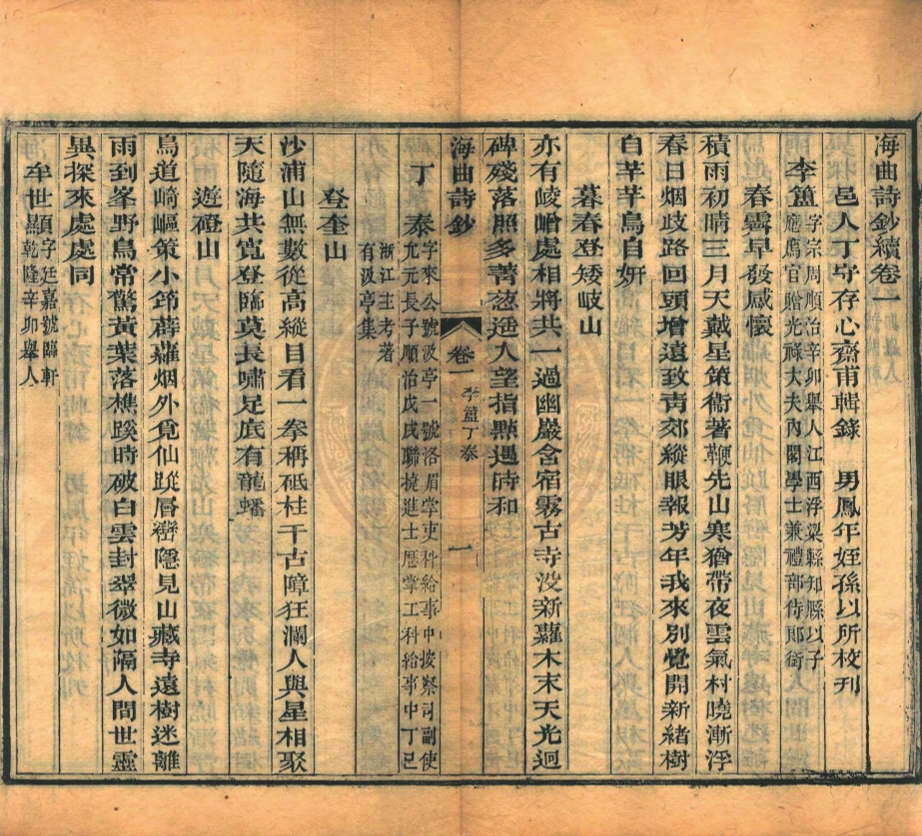 海曲詩鈔續卷一
邑人丁守存心齋甫輯錄　男鳳年姪孫以所校刊
李䀋
字宗周順治辛卯舉人江西浮梁縣知縣以子
應廌官贈光祿大夫內閣學士兼禮部侍郎銜
春雪早發感懷
積雨初晴三月天戴星策衛著鞭先山寒猶帶夜雲氣村曉漸浮
春日烟歧路回頭增遠致靑郊縱眼報芳年我來別覺開新緒樹
自芊芊鳥自妍
暮春登矮岐山
亦有崚嶒處相將共一過幽巖含宿霧古寺沒新蘿木末天光迥
碑殘落照多菁葱遊人望指點遇時和
海曲詩鈔　卷一　李䀋丁泰　一
丁　泰
字來公號汲亭一號洛眉掌吏科給事中按察司副使
允元長子順治戊戌聯捷進士歷掌工科給事中丁巳
浙江主考著
有汲亭集
登奎山
沙浦山無數從高縱目看一拳稱砥柱千古障狂瀾人與星相聚
天隨海共寬登臨莫長嘯足底有龍蟠
遊磴山
鳥道崎嶇策小筇薜蘿烟外覓仙蹤層巒隱見山藏寺遠樹迷離
雨到峯野鳥常驚黃葉落樵蹊時破白雲封翠微如隔人間世靈
異探來處處同
牟世顯
字廷嘉號臨軒
乾隆辛卯舉人